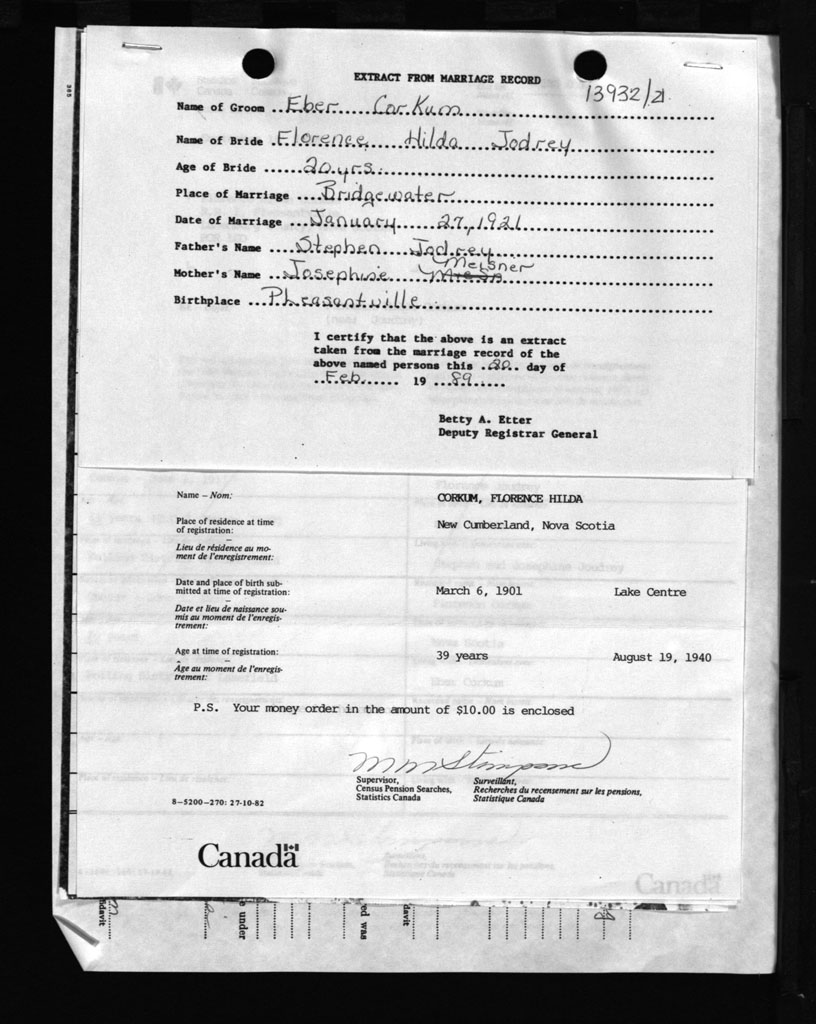 EXTRACT FROM MARRIAGE RECORD
13932/21
Name of Groom ..Eber Corkum
Name of Bride .Florence Hilda Jodrey
Age of Bride .....20 yrs.
Place of Marriage ...Bridgewater
Date of Marriage ...January 27, 1921
Father's Name ....Stephen Jodrey
Meisner
Mother's Name ..Josephine
Birthplace ..Pheasantville
I certify that the above is an extract
taken from the marriage record of the
above named persons this .20.. day of
..Feb...... 19 ..89......
Betty A. Etter
Deputy Registrar General
Name – Nom: CORKUM, FLORENCE HILDA
Place of residence at time
of registration: New Cumberland, Nova Scotia
Lieu de résidence au mo-
ment de l'enregistrement:
Date and place of birth sub-
mitted at time of registration: March 6, 1901 Lake Centre
Date et lieu de naissance sou-
mis au moment de l'enregis-
trement:
Age at time of registration: 39 years August 19, 1940
Âge au moment de l'enregis-
trement:
P.S. Your money order in the amount of $10.00 is enclosed
Supervisor, Surveillant,
Census Pension Searches, Recherches du recensement sur les pensions,
Statistics Canada Statistique Canada
8–5200–270: 27-10-82
Canada
Canada
davit
e under
ed was
davit